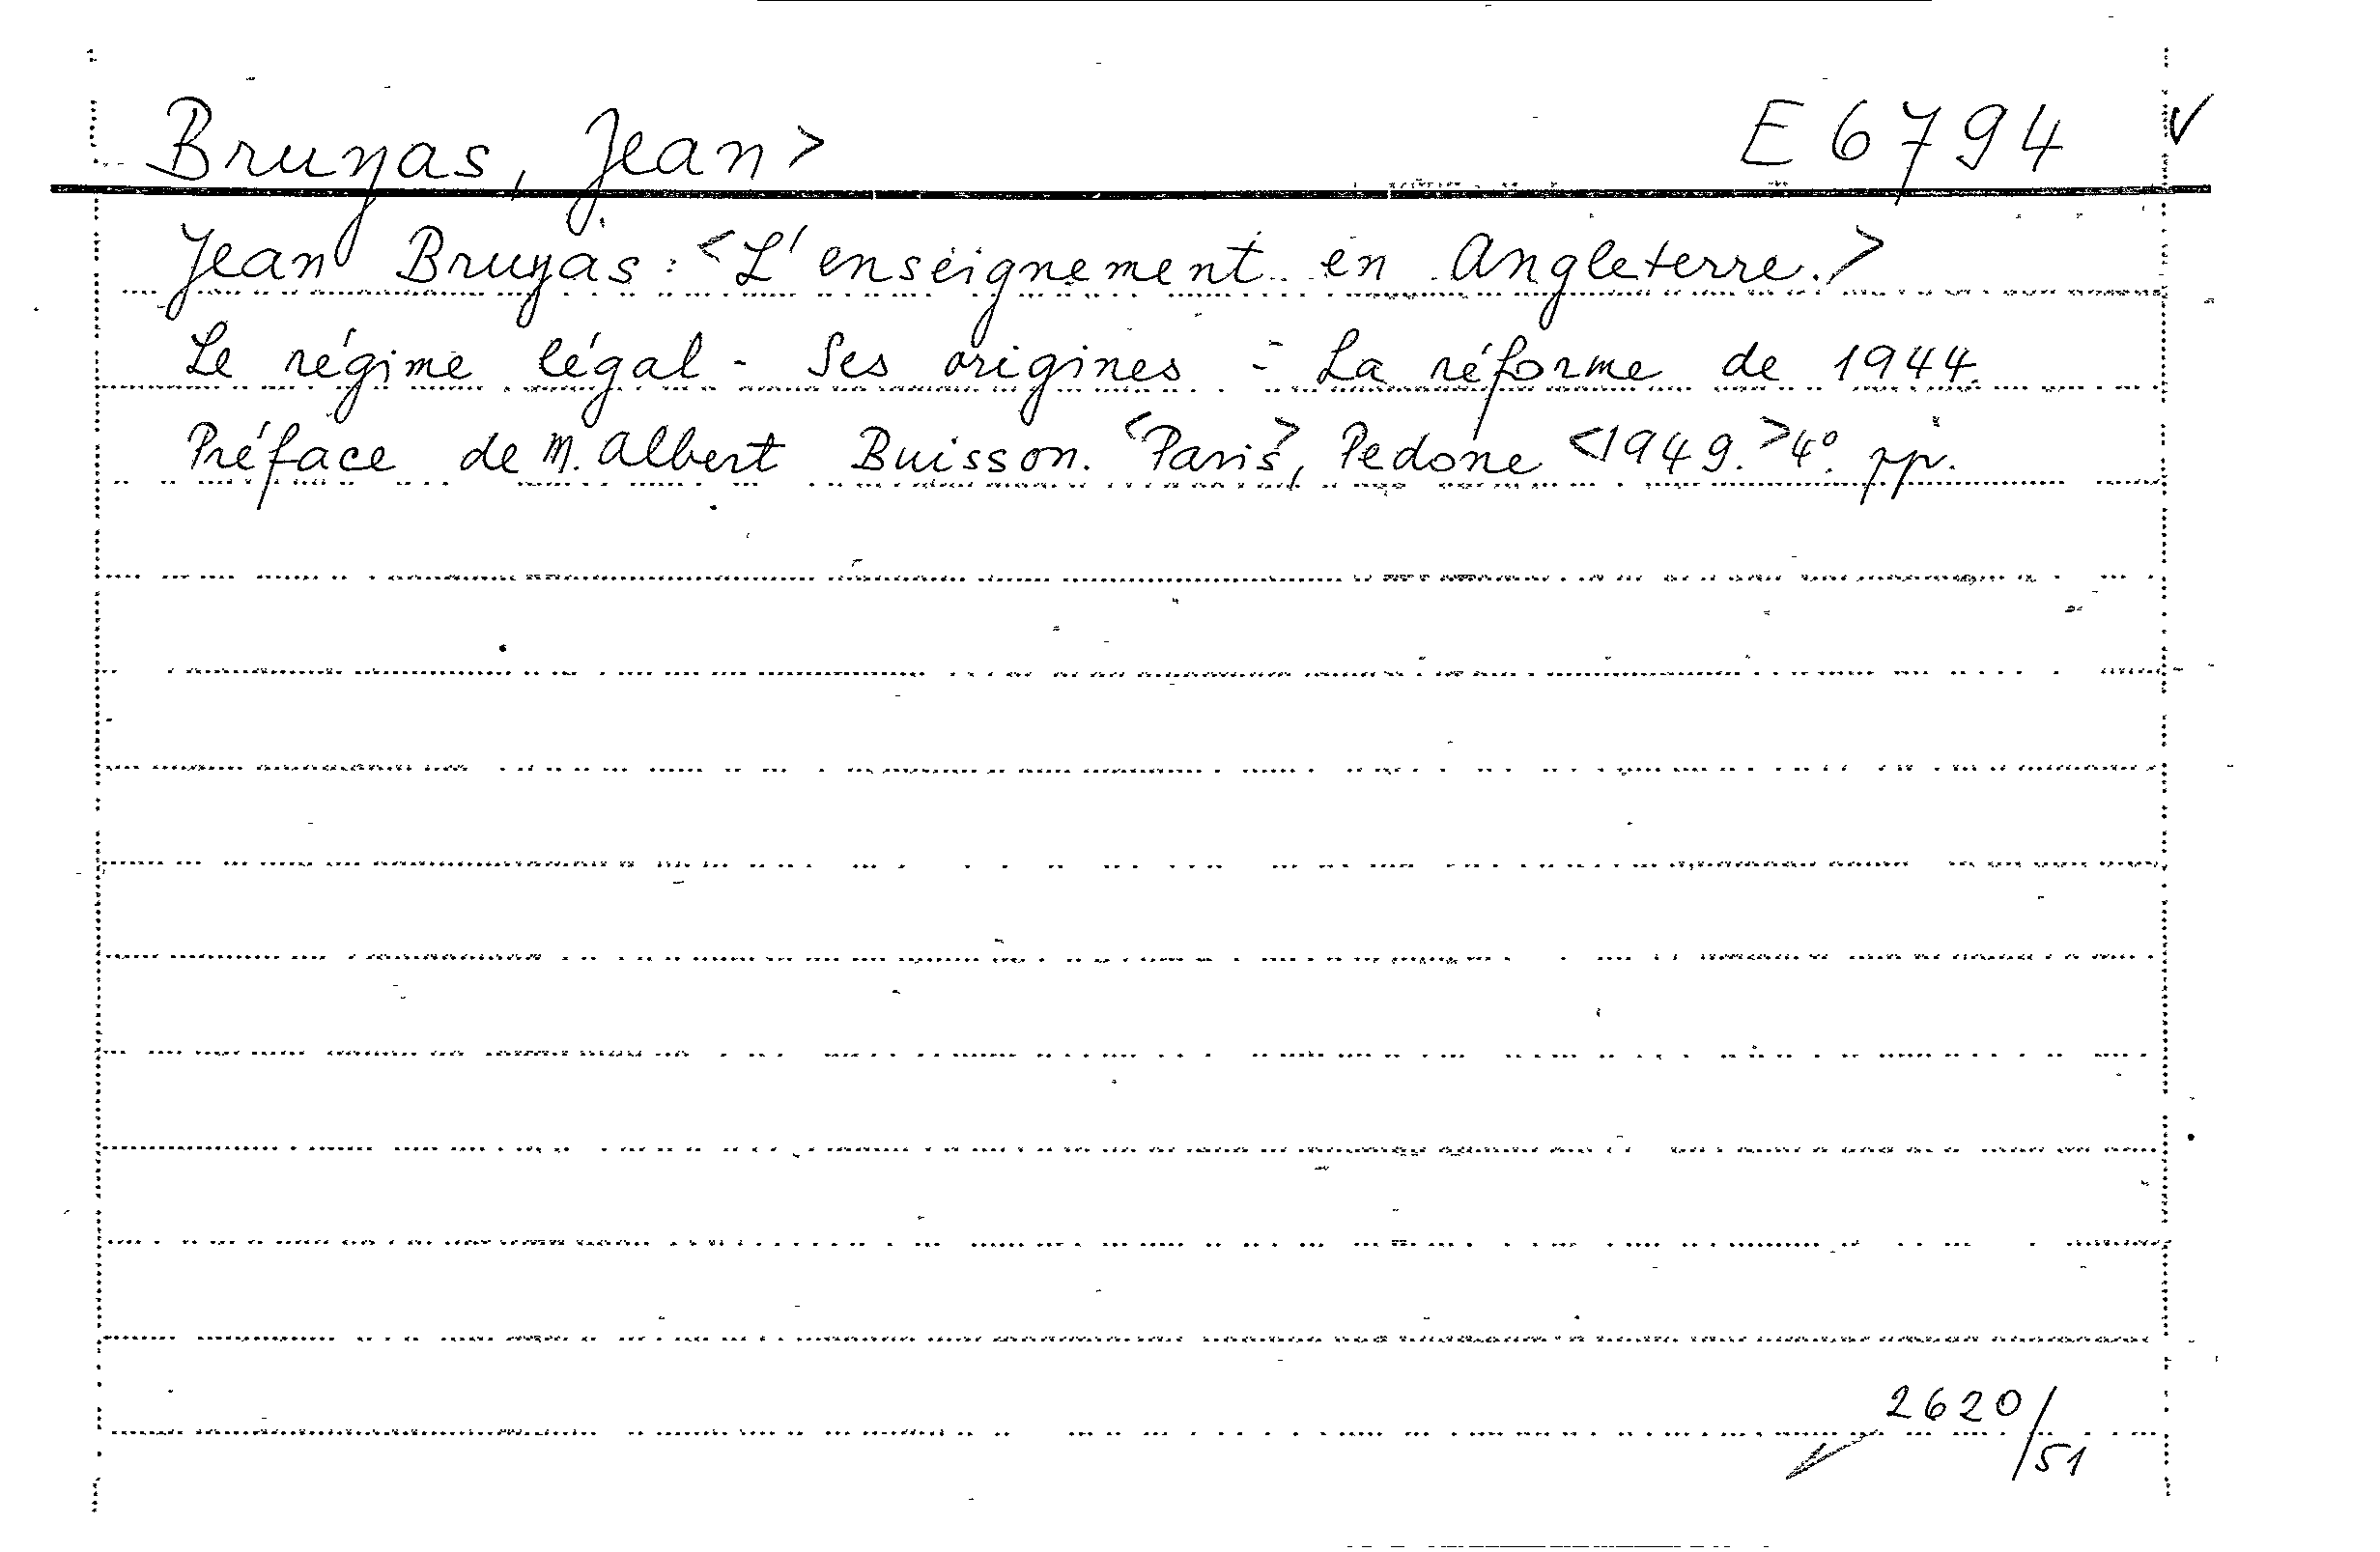 Bruyas, Jean> E 6794 ✓
Jean Bruyas: <L'enseignement en Angleterre.>
Le régime légal - Ses origines - La réforme de 1944.
Préface de M. Albert Buisson. <Paris>, Pedone <1949.> 4°. pp.
2620/51